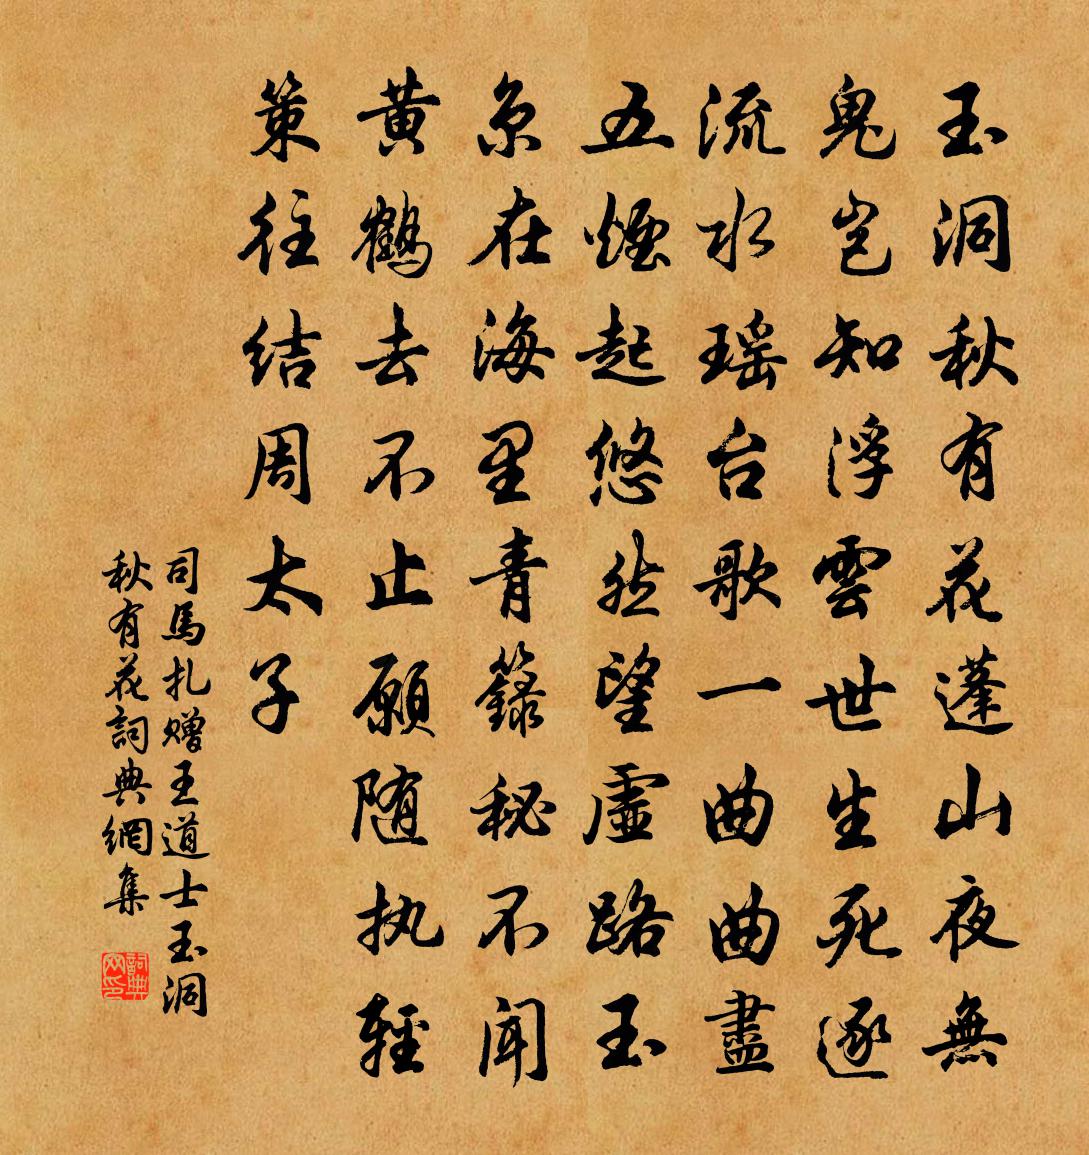 玉洞秋有花蓬山夜無
鬼豈知浮雲世生死逐
流水瑶台歌一曲曲盡
五煙起悠然望虛路玉
京在海里青籙秘不聞
黄鶴去不止願随执輕
策往结周太子
司馬扎赠王道士玉洞
秋有花詞典網集
詞典网印